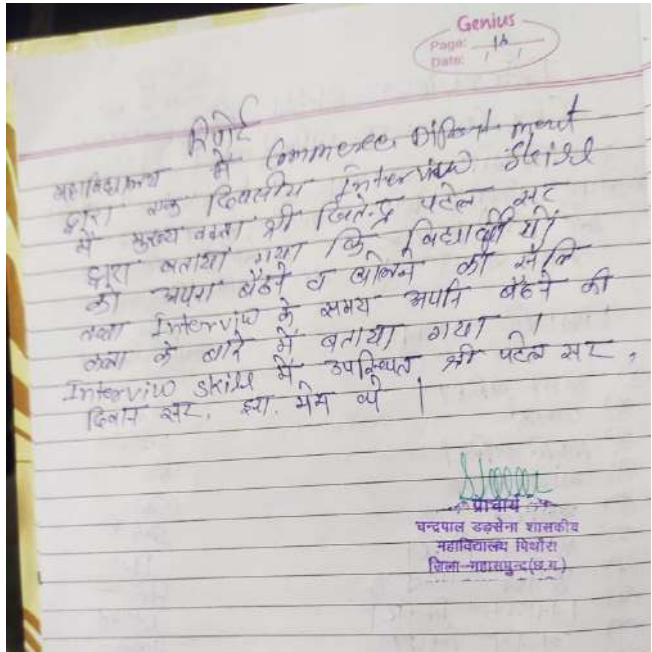 Genius
Page: 16
Date: / /
रिपोर्ट
महाविद्यालय में Commerce
द्वारा एक दिवसीय Interview Skill
में मुख्य वक्ता श्री जितेन्द्र पटेल सर
द्वारा बताया गया कि विद्यार्थीयों
को अपना बैठने व बोलने की सैलि
तथा Interviw के समय अपनि बैठने की
कला के बारे में बताया गया ।
Interviw skill में उपस्थित श्री पटेल सर,
दिवान सर, मेम थे ।
प्राचार्य
चन्द्रपाल डड़सेना शासकीय
महाविद्यालय पिथौरा
जिला-महासमुन्द(छ.ग.)